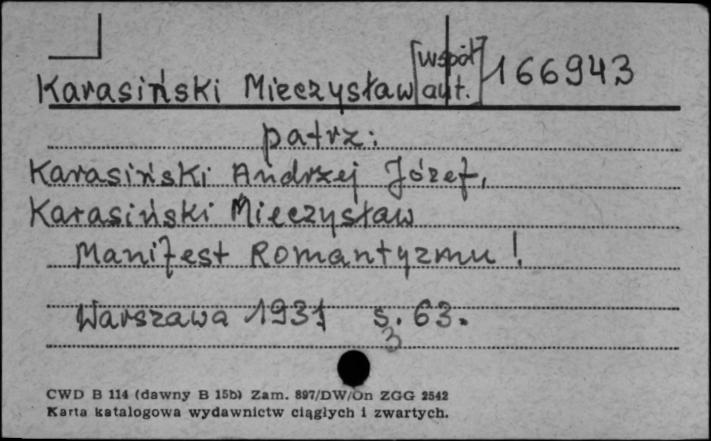 Karasiński Mieczysław [współaut.] 166943
patrz:
Karasiński Andrzej Józef,
Karasiński Mieczysław
Manifest Romantyzmu!
Warszawa 1931 s. 63.
3
CWD B 114 (dawny B 15b) Zam. 897/DW/On ZGG 2542
Karta katalogowa wydawnictw ciągłych i zwartych.